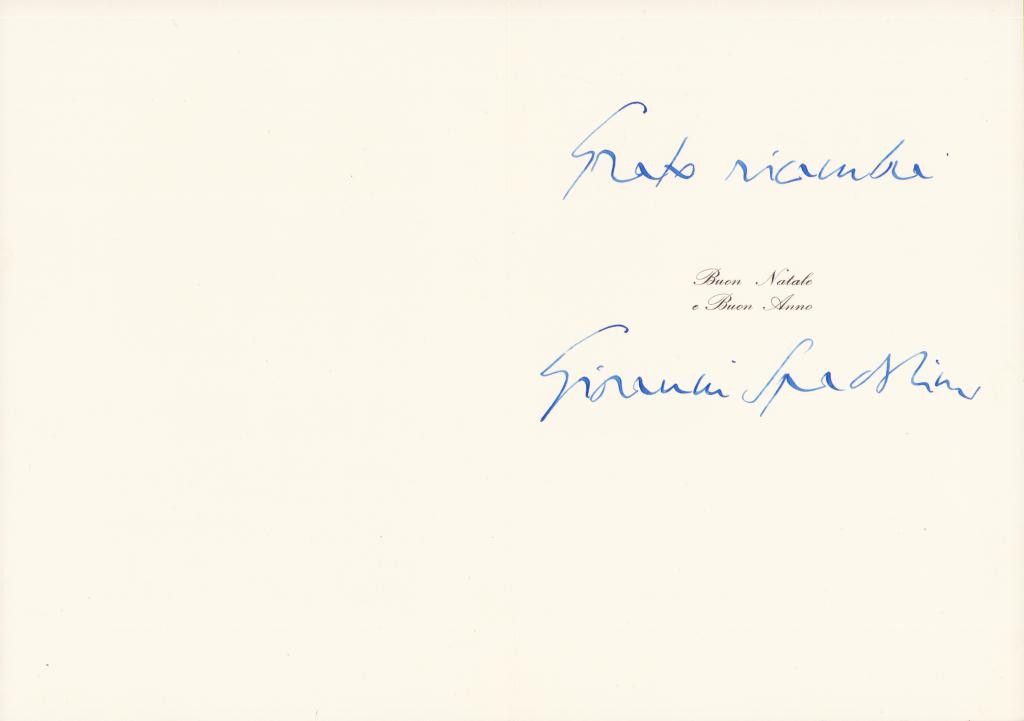 Grato ricambia
Buon Natale
e Buon Anno
Giovanni Spadolini